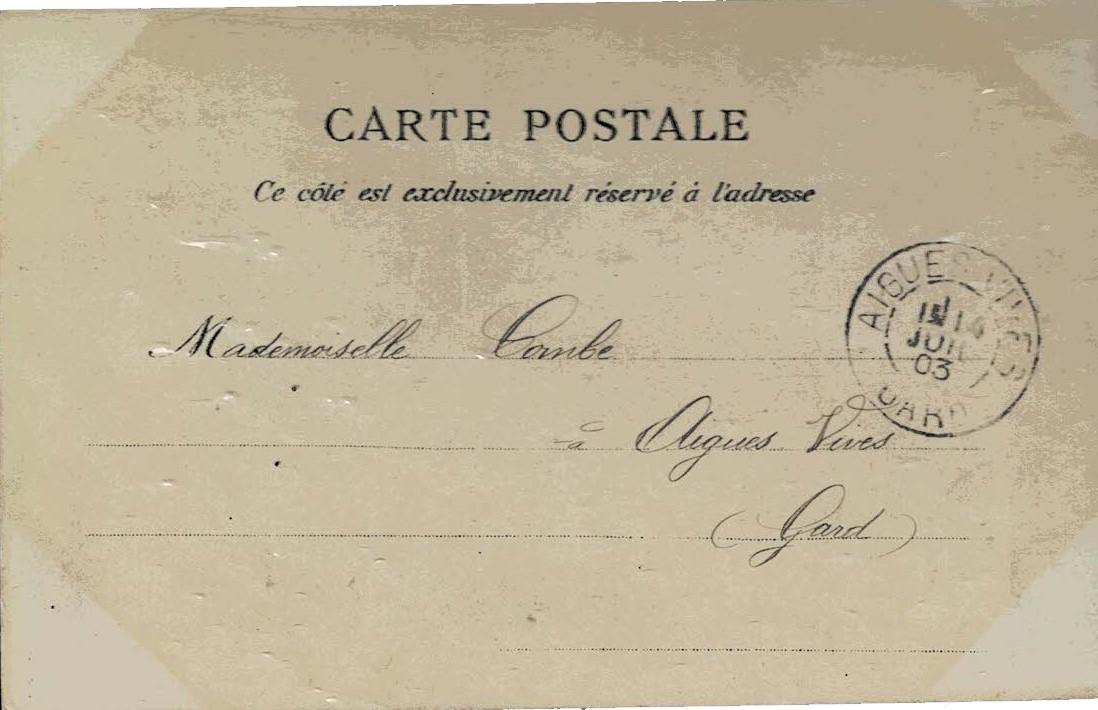 CARTE POSTALE
Ce côté est exclusivement réservé à l'adresse
Mademoiselle Combe
à Aigues Vives
(Gard)
AIGUES-VIVES
JUIL
03
GARD